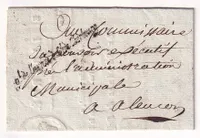 Au Commissaire
du pouvoir executif
de l'administration
Municipale
a alencon